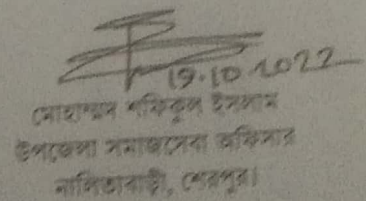 19.10.2022
মোহাম্মদ শফিকুল ইসলাম
উপজেলা সমাজসেবা অফিসার
নালিতাবাড়ী, শেরপুর।